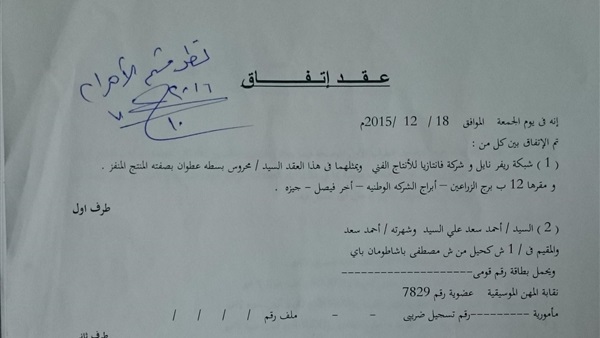 عقد إتفاق
نظر قسم الأهرام
٢٠١٦
١٠
إنه فى يوم الجمعة الموافق 18 / 12 /2015م
تم الإتفاق بين كل من :
( 1 ) شبكة ريفر نايل و شركة فانتازيا للأنتاج الفني ويمثلهما فى هذا العقد السيد / محروس بسطه عطوان بصفته المنتج المنفز .
و مقرها 12 ب برج الزراعين - أبراج الشركه الوطنيه - أخر فيصل - جيزه .
طرف اول
( 2 ) السيد / أحمد سعد علي السيد وشهرته / أحمد سعد
والمقيم فى / 1 ش كحيل من ش مصطفى باشاطومان باي
ويحمل بطاقة رقم قومى--------------------
نقابة المهن الموسيقية عضوية رقم 7829
مأمورية ---------رقم تسجيل ضريبى - - ملف رقم / / / /